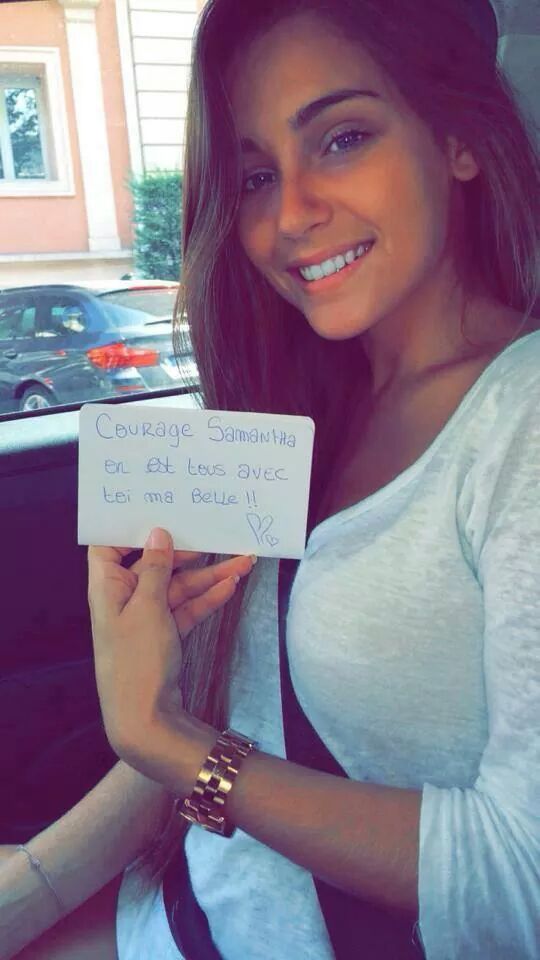 Courage Samantha
on est tous avec
toi ma belle !!